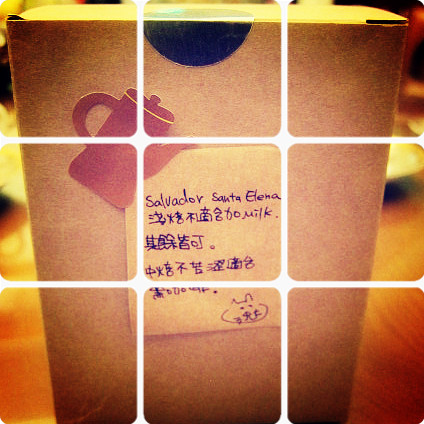 Salvador Santa Elena
淺焙不適合加milk.
其餘皆可。
中焙不苦澀適合